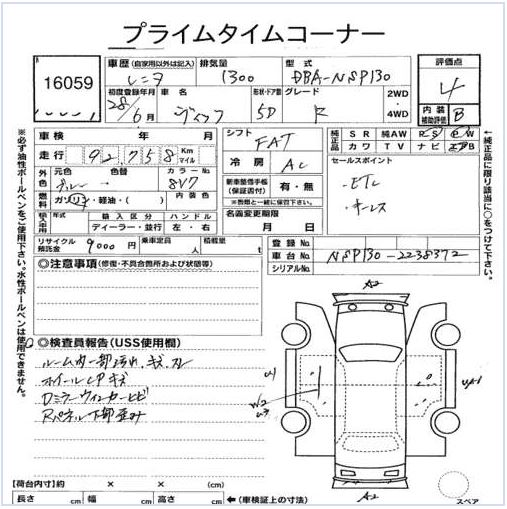 プライムタイムコーナー
16059
車歴 (自家用以外は記入) 排気量 型式 評価点
レンタ 1300 DBA-NSP130 4
初度登録年月 車名 形状・ドア数 グレード 2WD 4WD 内装補助評価 B
28/6月 ヴィッツ 5D F
車検 年 月 シフト FAT
純正品 SR 純AW PS PW
カワ TV ナビ エアB
走行 92,758 Km マイル
冷房 AC
セールスポイント
・ETC
・キーレス
外色 元色 色替 カラーNo
ブルー 8V7
新車整備手帳(保証書付) 有・無
※書類と一緒に保管下さい。
燃料 ガソリン・軽油・( ) 内装色
名義変更期限 月 日
輸入車用 年式 輸入区分 ハンドル
ディーラー・並行 左・右
リサイクル預託金 9000円 乗車定員 人 積載量 t
登録No.
車台No. NSP130-2238372
シリアルNo.
※必ず油性ボールペンをご使用下さい。水性ボールペンは使用できません。
←純正品に限り該当に○をつけて下さい。
◎注意事項 (修復・不具合箇所および状態等)
◎検査員報告 (USS使用欄)
ルーム内一部汚れ、キズ、穴
ホイールCPキズ
Dミラーウィンカーヒビ
Rパネル下部歪み
A2
U1
W2
U3
UA1
A2
スペア
【荷台内寸】約 × × (cm)
長さ cm 幅 cm 高さ cm ←(車検証上の寸法)